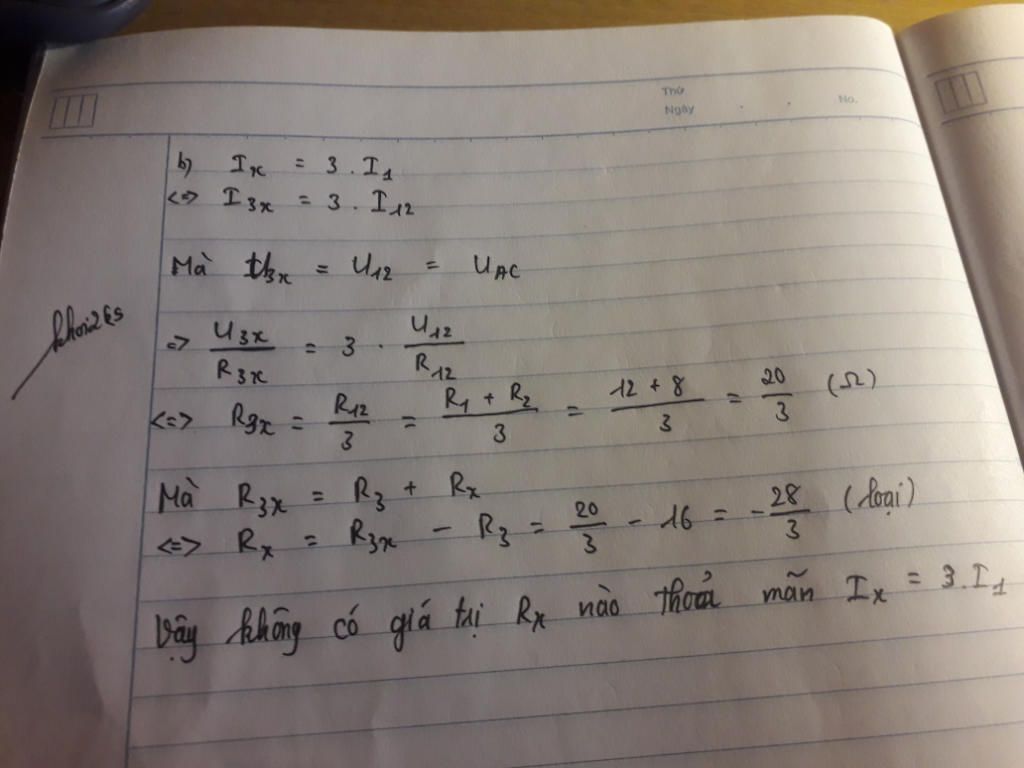 Thứ
Ngày . . No.
b) Iₓ = 3 . I₁
<=> I₃ₓ = 3 . I₁₂
Mà U₃ₓ = U₁₂ = U_AC
=> U₃ₓ/R₃ₓ = 3 . U₁₂/R₁₂
<=> R₃ₓ = R₁₂/3 = (R₁ + R₂)/3 = (12 + 8)/3 = 20/3 (Ω)
Mà R₃ₓ = R₃ + Rₓ
<=> Rₓ = R₃ₓ - R₃ = 20/3 - 16 = -28/3 (loại)
Vậy không có giá trị Rₓ nào thoả mãn Iₓ = 3.I₁